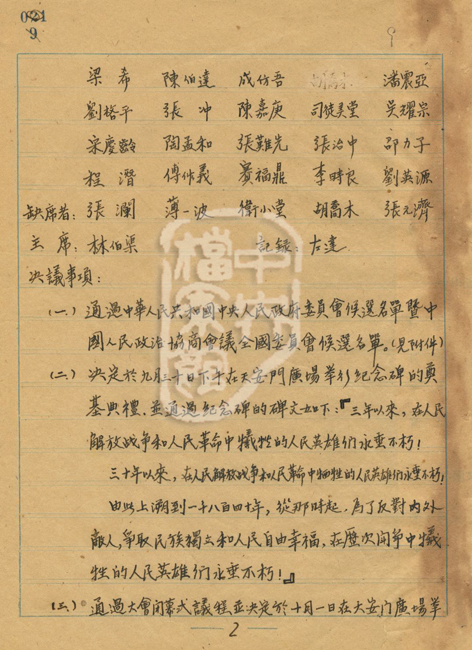 021
9
梁希 陳伯達 成仿吾 潘震亞
劉格平 張冲 陳嘉庚 司徒美堂 吳耀宗
宋慶齡 陶孟和 張難先 張治中 邵力子
程潛 傅作義 賽福鼎 李時良 劉英源
缺席者：張瀾 薄一波 衛小堂 胡喬木 張元濟
主席：林伯渠 記録：左達
决議事項：
(一) 通過中華人民共和國中央人民政府委員會候選名單暨中
國人民政治協商會議全國委員會候選名單。(見附件)
(二) 决定於九月三十日下午在天安門廣場舉行紀念碑的奠
基典禮，並通過紀念碑的碑文如下：『三年以來，在人民
解放战争和人民革命中犠牲的人民英雄們永垂不朽！
三十年以來，在人民解放战争和人民革命中犧牲的人民英雄們永垂不朽！
由此上溯到一千八百四十年，從那時起，為了反對内外
敵人，爭取民族獨立和人民自由幸福，在歷次鬥爭中犠
牲的人民英雄們永垂不朽！』
(三) 通過大會閉幕式議程並决定於十月一日在天安门廣場舉
2
中央檔案館